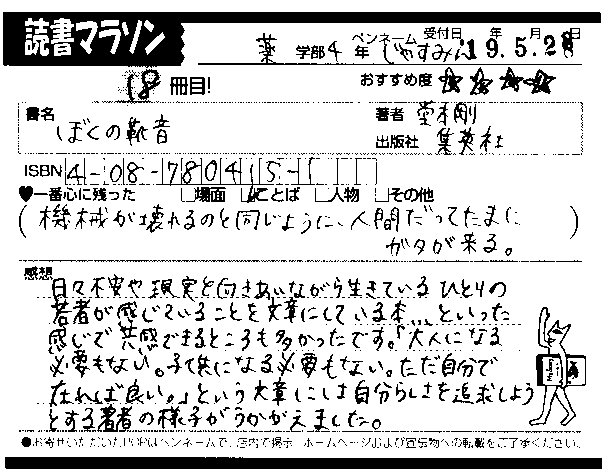 読書マラソン
薬 学部 4 年 ペンネーム じゃすみん 受付日 '19.5.28 年 月 日
18 冊目! おすすめ度 ☆☆☆☆
書名 ぼくの靴音
著者 堂本剛
出版社 集英社
ISBN 4-08-780415-1
♥一番心に残った □場面 □ことば □人物 □その他
(機械が壊れるのと同じように、人間だってたまに
ガタが来る。)
感想
日々不安や現実と向きあいながら生きているひとりの
若者が感じていることを文章にしている本…といった
感じで共感できるところも多かったです。「大人になる
必要もない。子供になる必要もない。ただ自分で
在れば良い。」という文章には自分らしさを追求しよう
とする著者の様子がうかがえました。
●お寄せいただいたPOPはペンネームで、店内で掲示、ホームページおよび宣伝物への転載をご了承ください。